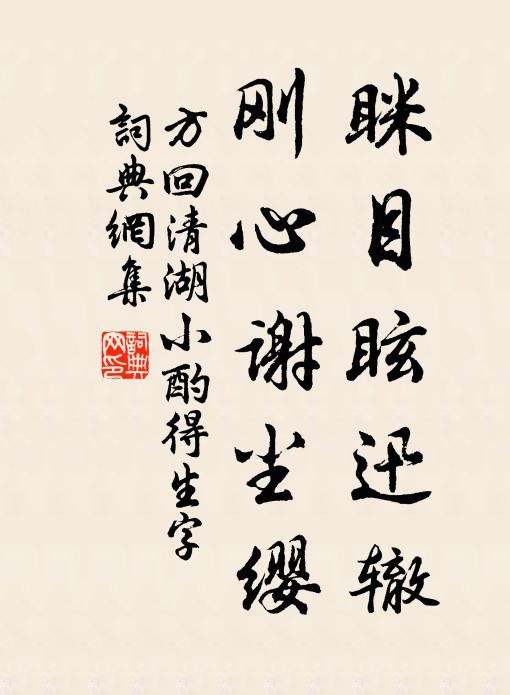 眯目眩迅辙
刚心谢尘缨
方回清湖小酌得生字
詞典網集
詞典
网印